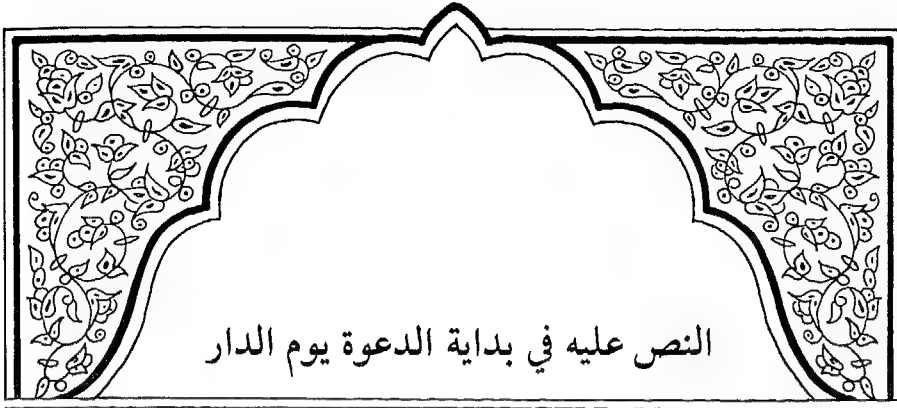 النص عليه في بداية الدعوة يوم الدار